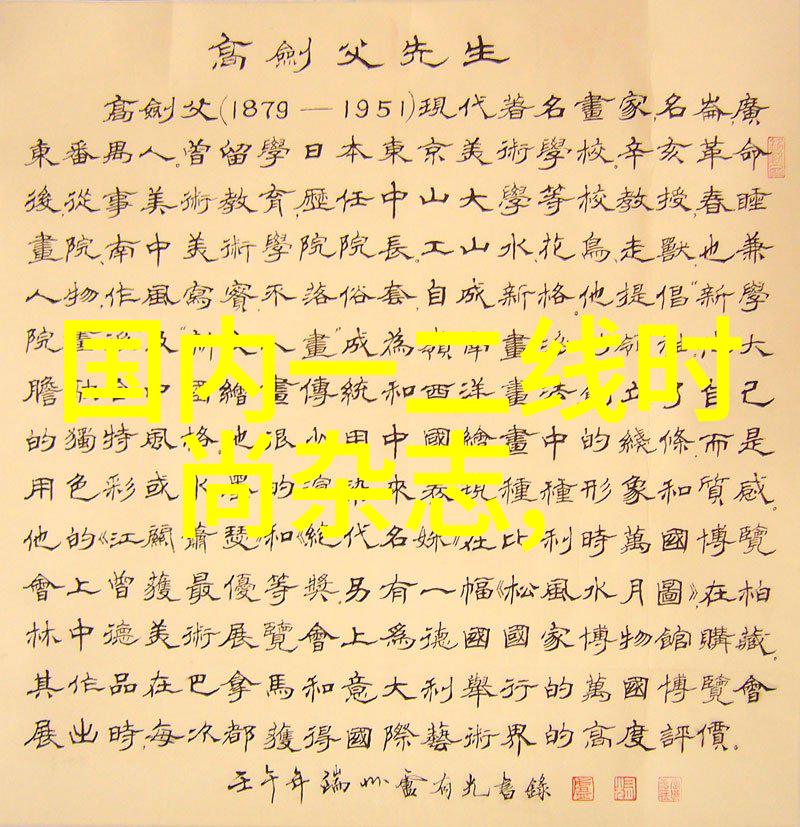 高劍父先生
高劍父(1879—1951)現代著名畫家,名崙,廣
東番禺人。曾留學日本東京美術學校。辛亥革命
後,從事美術教育,歷任中山大學等校教授,春睡
畫院、南中美術學院院長。工山水、花鳥、走獸,也兼
人物。作風寫實,不落俗套,自成新格。他提倡"新學
院畫"及"新文人畫"成為嶺南畫大
膽中國繪畫傳統和西洋畫法創立了自己
的獨特風格。他很少用中國繪畫中的綫條,而是
用色彩或水墨的渲染來表現種種形象和質感。
他的《江關蕭瑟》和《絕代名姝》在比利時萬國博覽
會上曾獲最優等獎。另有一幅《松風水月圖》,在柏
林中德美術展覽會上爲德國國家博物館購藏。
其作品在巴拿馬和意大利舉行的萬國博覽會
展出時,每次都獲得國際藝術界的高度評價。
壬午年端州盧有光書錄
国内一二线时
尚杂志,